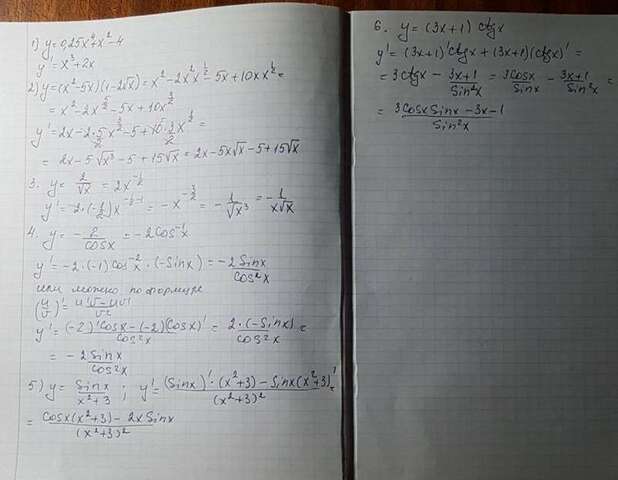 1) y = 0,25x⁴ + x² - 4
y' = x³ + 2x
2) y = (x² - 5x)(1 - 2√x) = x² - 2x²x^(1/2) - 5x + 10x x^(1/2) =
= x² - 2x^(5/2) - 5x + 10x^(3/2)
y' = 2x - 2·5/2 x^(3/2) - 5 + 10·3/2 x^(1/2) =
= 2x - 5√x³ - 5 + 15√x = 2x - 5x√x - 5 + 15√x
3. y = 2/√x = 2x^(-1/2)
y' = 2·(-1/2)x^(-1/2-1) = -x^(-3/2) = -1/√x³ = -1/(x√x)
4. y = -2/cosx = -2cos⁻¹x
y' = -2·(-1)cos⁻²x·(-sinx) = -2sinx/cos²x
или можно по формуле
(u/v)' = (u'v - uv')/v²
y' = ((-2)'cosx - (-2)(cosx)')/cos²x = 2·(-sinx)/cos²x =
= -2sinx/cos²x
5) y = sinx/(x²+3) ; y' = ((sinx)'·(x²+3) - sinx(x²+3)')/(x²+3)² =
= (cosx(x²+3) - 2x sinx)/(x²+3)²
6. y = (3x+1) ctgx
y' = (3x+1)'ctgx + (3x+1)(ctgx)' =
= 3ctgx - (3x+1)/sin²x = 3cosx/sinx - (3x+1)/sin²x =
= (3cosx sinx - 3x - 1)/sin²x